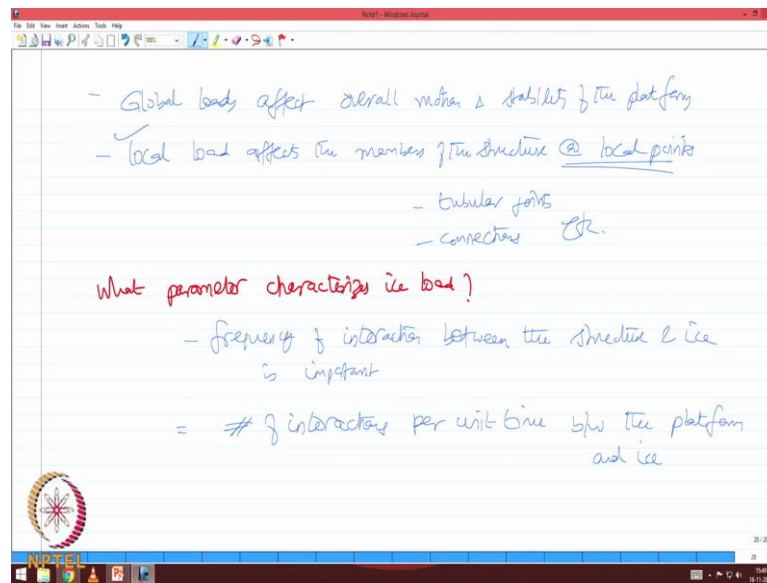 Note1 - Windows Journal
File Edit View Insert Actions Tools Help
- Global loads affect overall motion & stability of the platform
- local load affects the members of the structure @ local points
- tubular joints
- connections etc.
What parameter characterizes ice load?
- frequency of interaction between the structure & ice
is important
= # of interactions per unit time b/w the platform
and ice
NPTEL
20/20
20